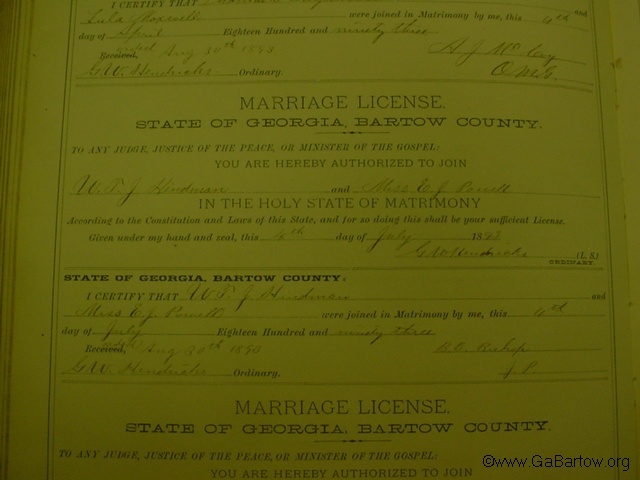 I CERTIFY THAT
Lula Maxwell were joined in Matrimony by me, this 4th
day of April Eighteen Hundred and ninety three
Received, Aug 30th 1893
G.W. Hendricks Ordinary.
MARRIAGE LICENSE.
STATE OF GEORGIA, BARTOW COUNTY.
TO ANY JUDGE, JUSTICE OF THE PEACE, OR MINISTER OF THE GOSPEL:
YOU ARE HEREBY AUTHORIZED TO JOIN
W. T. J. Hindman and Miss E J Powell
IN THE HOLY STATE OF MATRIMONY
According to the Constitution and Laws of this State, and for so doing this shall be your sufficient License.
Given under my hand and seal, this 4th day of July 1893
G W Hendricks (L. S.)
ORDINARY.
STATE OF GEORGIA, BARTOW COUNTY:
I CERTIFY THAT W T J Hindman and
Miss E. J. Powell were joined in Matrimony by me, this 4th
day of July Eighteen Hundred and ninety three
Received, Aug 30th 1893 B.B. Bishop
G.W. Hendricks Ordinary. J P.
MARRIAGE LICENSE.
STATE OF GEORGIA, BARTOW COUNTY.
TO ANY JUDGE, JUSTICE OF THE PEACE, OR MINISTER OF THE GOSPEL:
YOU ARE HEREBY AUTHORIZED TO JOIN
©www.GaBartow.org